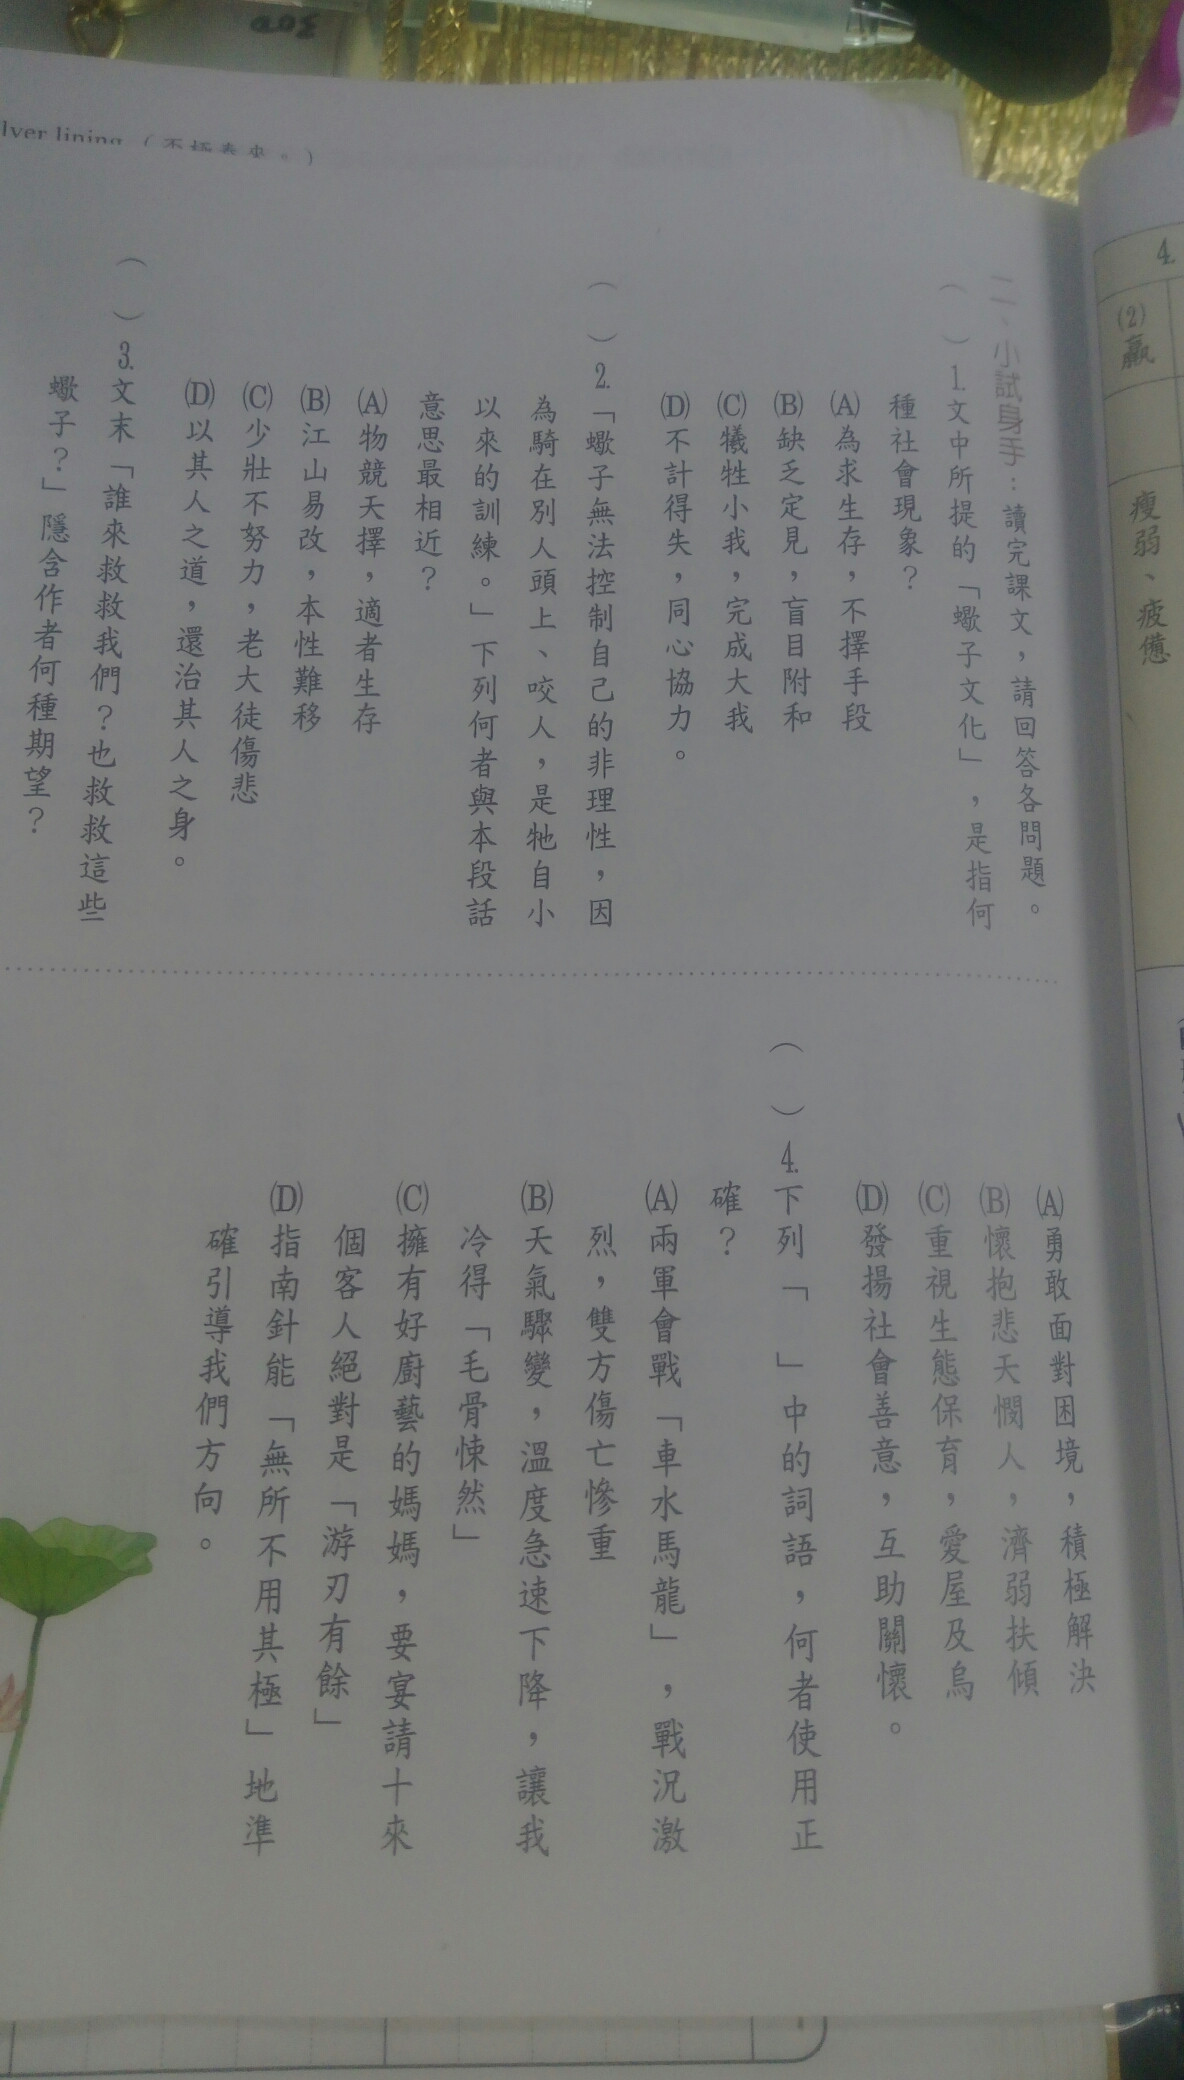 二、小試身手：讀完課文，請回答各問題。
（　）1.文中所提的「蠍子文化」，是指何
種社會現象？
(A)為求生存，不擇手段
(B)缺乏定見，盲目附和
(C)犧牲小我，完成大我
(D)不計得失，同心協力。
（　）2.「蠍子無法控制自己的非理性，因
為騎在別人頭上、咬人，是牠自小
以來的訓練。」下列何者與本段話
意思最相近？
(A)物競天擇，適者生存
(B)江山易改，本性難移
(C)少壯不努力，老大徒傷悲
(D)以其人之道，還治其人之身。
（　）3.文末「誰來救救我們？也救救這些
蠍子？」隱含作者何種期望？
(A)勇敢面對困境，積極解決
(B)懷抱悲天憫人，濟弱扶傾
(C)重視生態保育，愛屋及烏
(D)發揚社會善意，互助關懷。
（　）4.下列「　」中的詞語，何者使用正
確？
(A)兩軍會戰「車水馬龍」，戰況激
烈，雙方傷亡慘重
(B)天氣驟變，溫度急速下降，讓我
冷得「毛骨悚然」
(C)擁有好廚藝的媽媽，要宴請十來
個客人絕對是「游刃有餘」
(D)指南針能「無所不用其極」地準
確引導我們方向。
4.
(2)羸
瘦弱、疲憊
lver lining